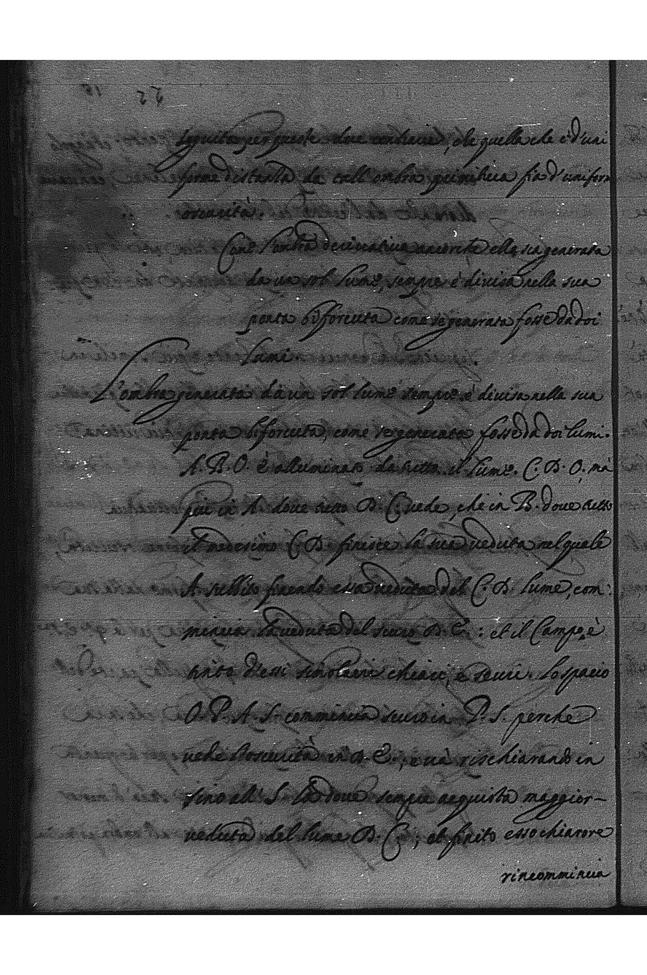 22
seguita per queste dove contrarie, che quella che è d'uni
forme distantia da tall'ombra primitiva sia d'uniform
oscurità.
Come l'ombra derivativa ancorche ella sia generata
da un sol lume, sempre è divisa nella sua
ponta biforcuta come se generata fosse da doi
lumi
L'ombra generata da un sol lume sempre è divisa nella sua
ponta biforcuta, come se generata fosse da doi lumi.
A. B. O. è alluminato da tutto il lume. C. D. O, mà
più in A. dove tutto D. C. vede, che in B. dove tutto
il medesimo C D. finisce la sua veduta nel quale
A. subbito finendo essa veduta del C. D. lume, com:
mincia la veduta del scuro D. E.: et il Campo è
tinto d'essi simolacri chiari, e scuri. Lo spacio
O. P. A. S. commincia scuro in P. S. perche
vede l'oscurità in D. E., e và rischiarando in
sino all' S. là dove sempre acquista maggior-
veduta del lume D. C.; et finito esso chiarore
rincommincia